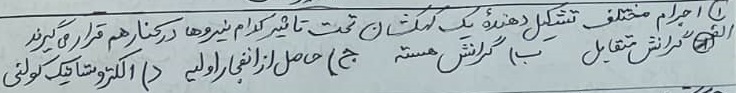 ① اجرام مختلف تشکیل دهندهٔ یک کهکشان تحت تاثیر کدام نیروها در کنار هم قرار می‌گیرند
الف) گرانش متقابل ب) گرانش هسته ج) حاصل از انفجار اولیه د) الکتروستاتیک کولنی